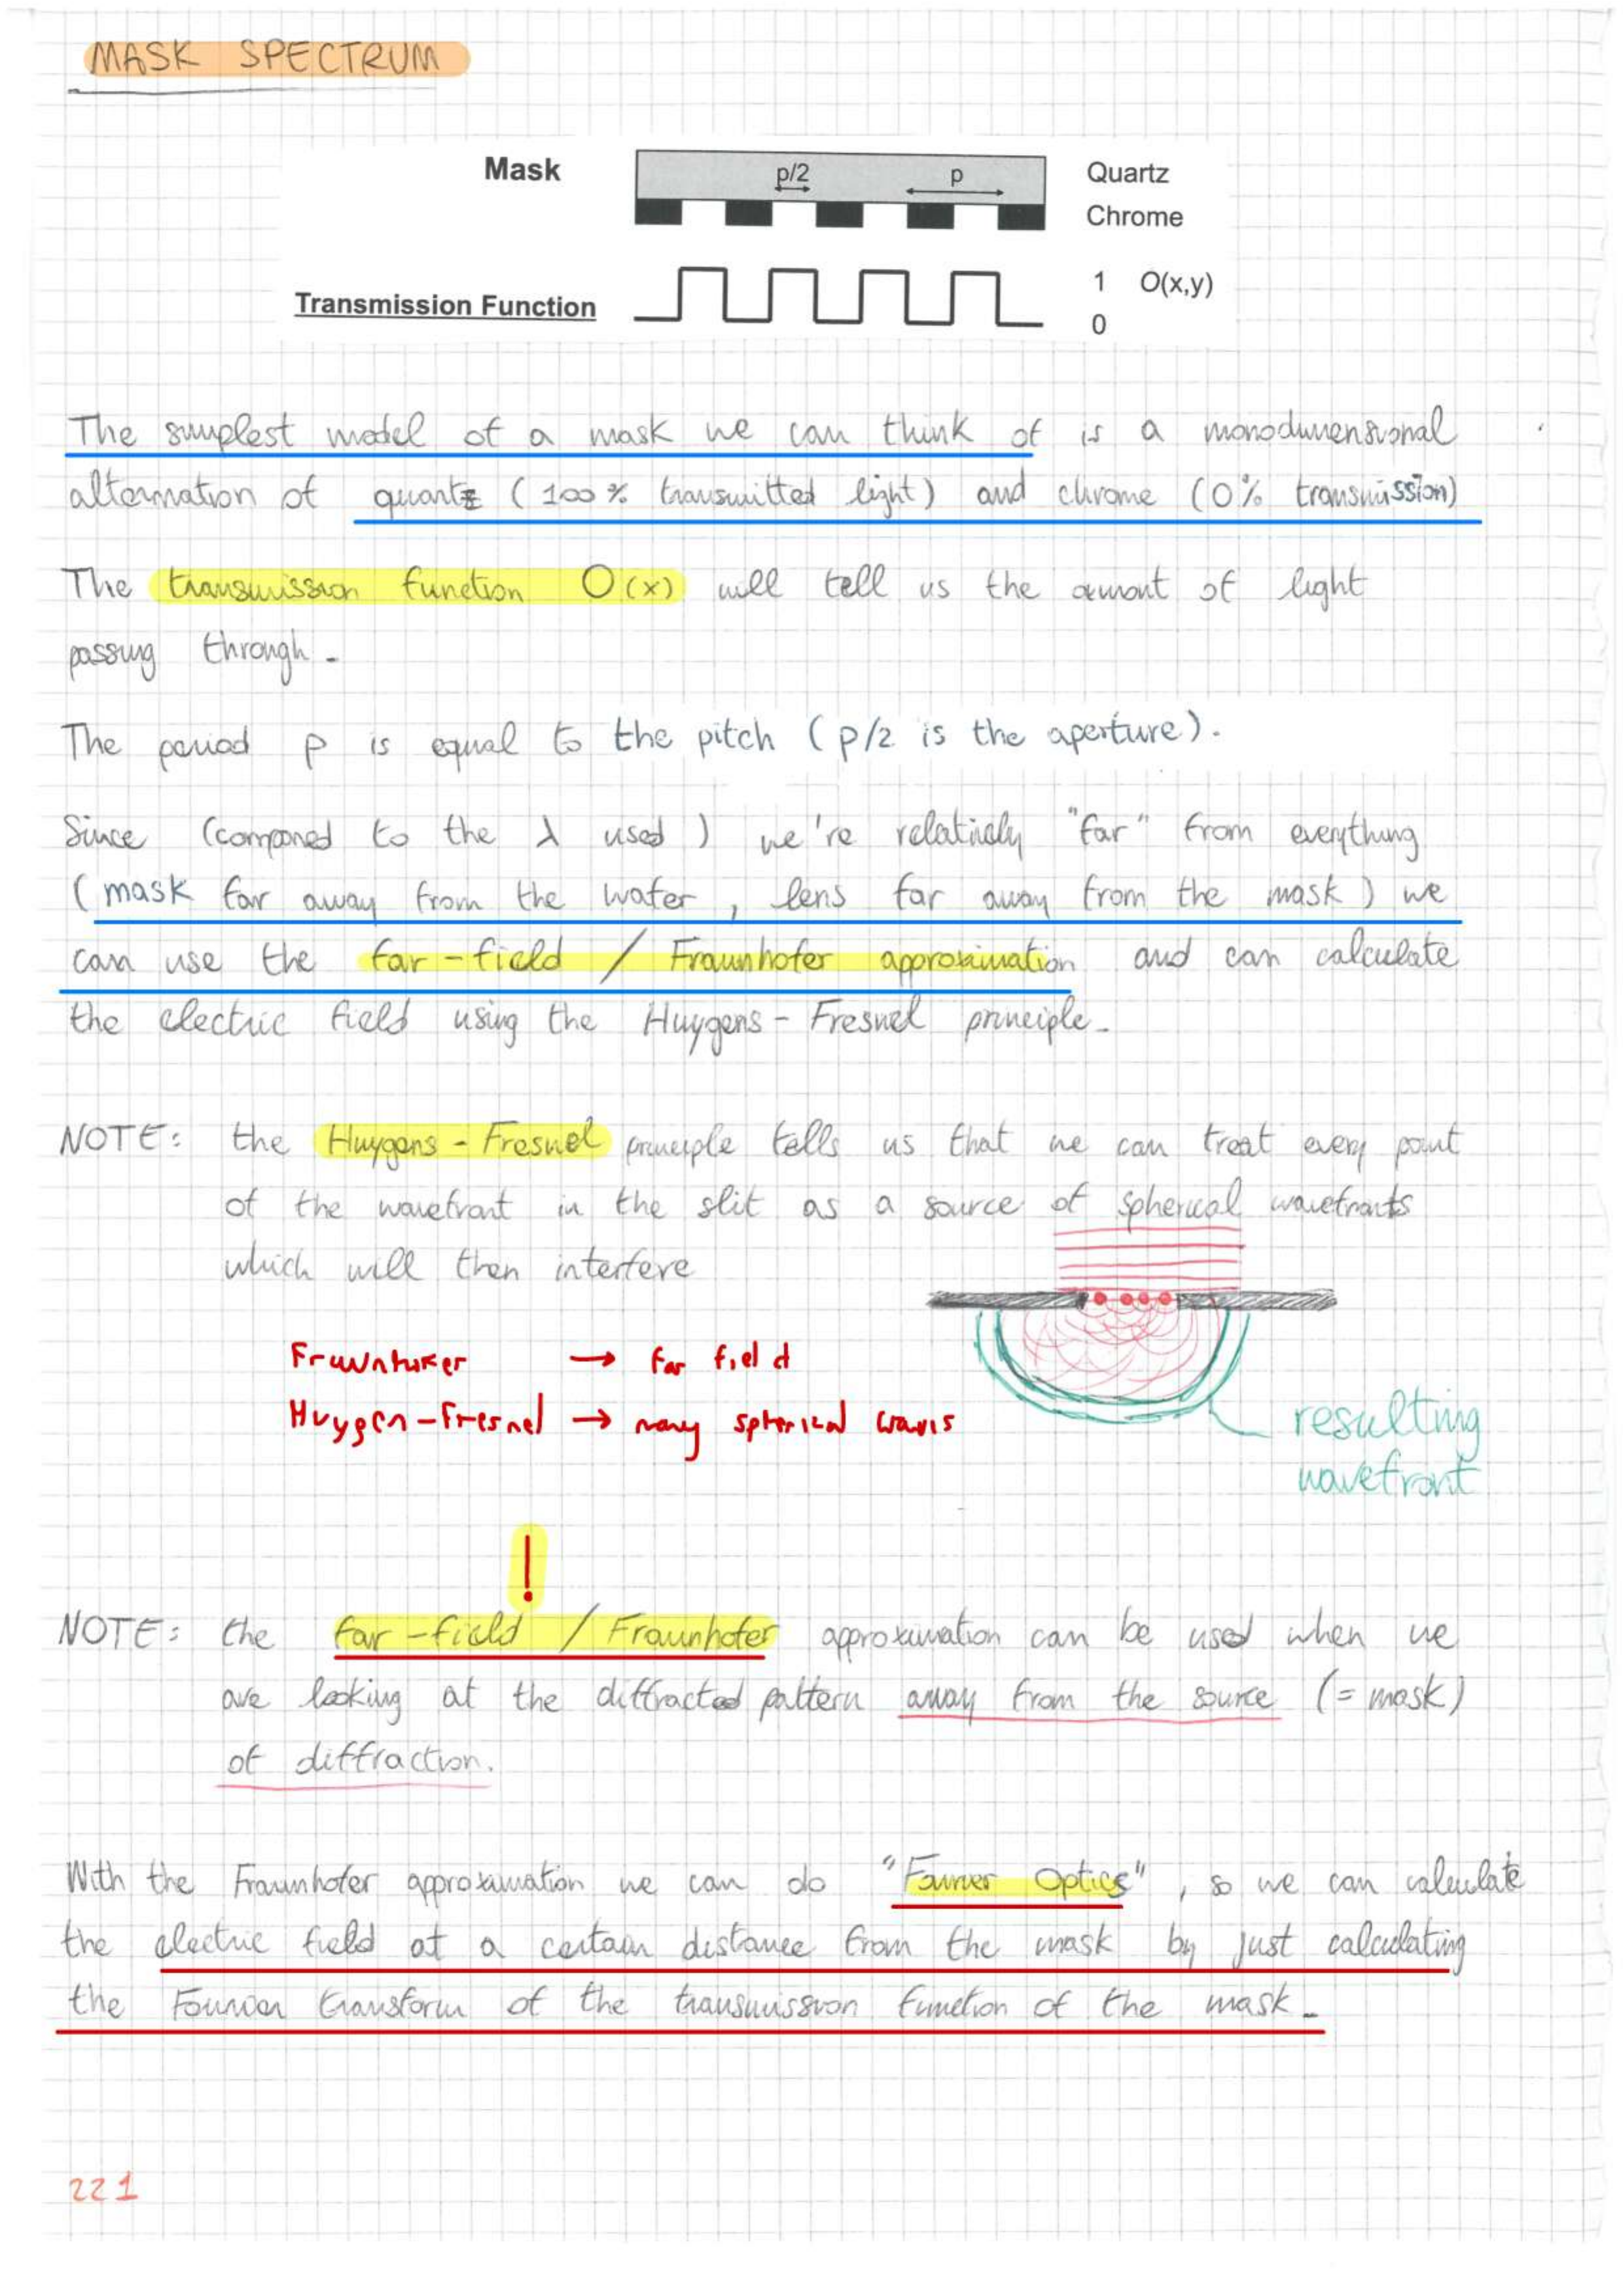 MASK SPECTRUM
Mask
p/2
p
Quartz
Chrome
Transmission Function
1 O(x,y)
0
The simplest model of a mask we can think of is a monodimensional
alternation of quartz (100% transmitted light) and chrome (0% transmission)
The transmission function O(x) will tell us the amont of light
passing through.
The period p is equal to the pitch (p/2 is the aperture).
Since (compared to the λ used) we're relatively "far" from everything
(mask far away from the wafer, lens far away from the mask) we
can use the far-field / Fraunhofer approximation and can calculate
the electric field using the Huygens-Fresnel principle.
NOTE: the Huygens-Fresnel principle tells us that we can treat every point
of the wavefront in the slit as a source of spherical wavefronts
which will then interfere
Fraunhofer → far field
Huygen-Fresnel → many spherical waves
resulting
wavefront
!
NOTE: the far-field / Fraunhofer approximation can be used when we
are looking at the diffracted pattern away from the source (= mask)
of diffraction.
With the Fraunhofer approximation we can do "Fourier Optics", so we can calculate
the electric field at a certain distance from the mask by just calculating
the Fourier transform of the transmission function of the mask.
221